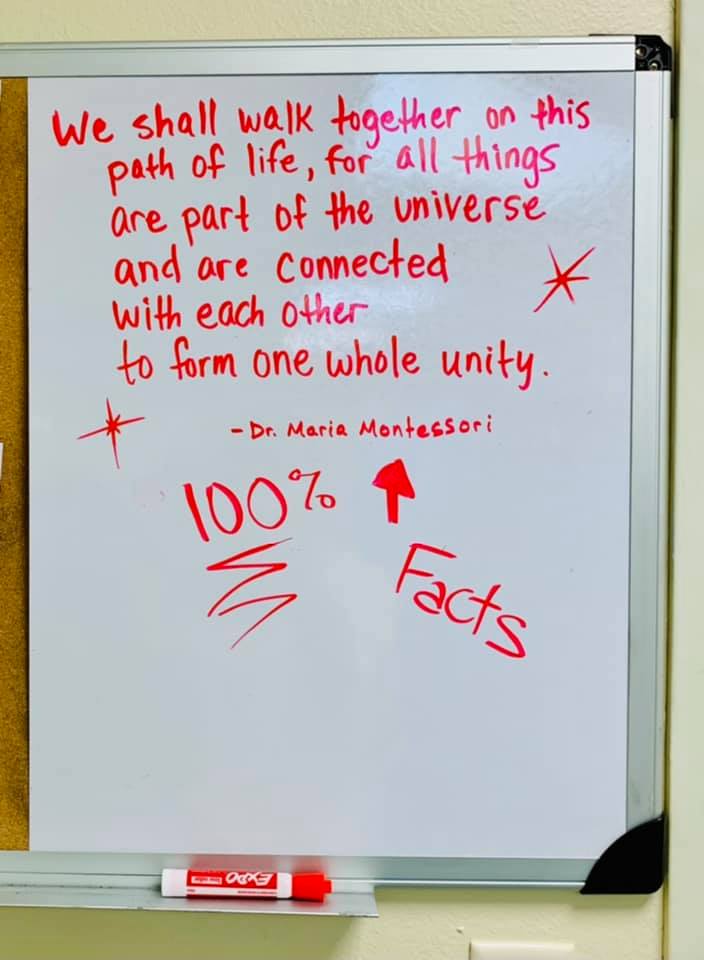 We shall walk together on this
path of life, for all things
are part of the universe
and are connected
with each other
to form one whole unity.
- Dr. Maria Montessori
100%
Facts
EXPO